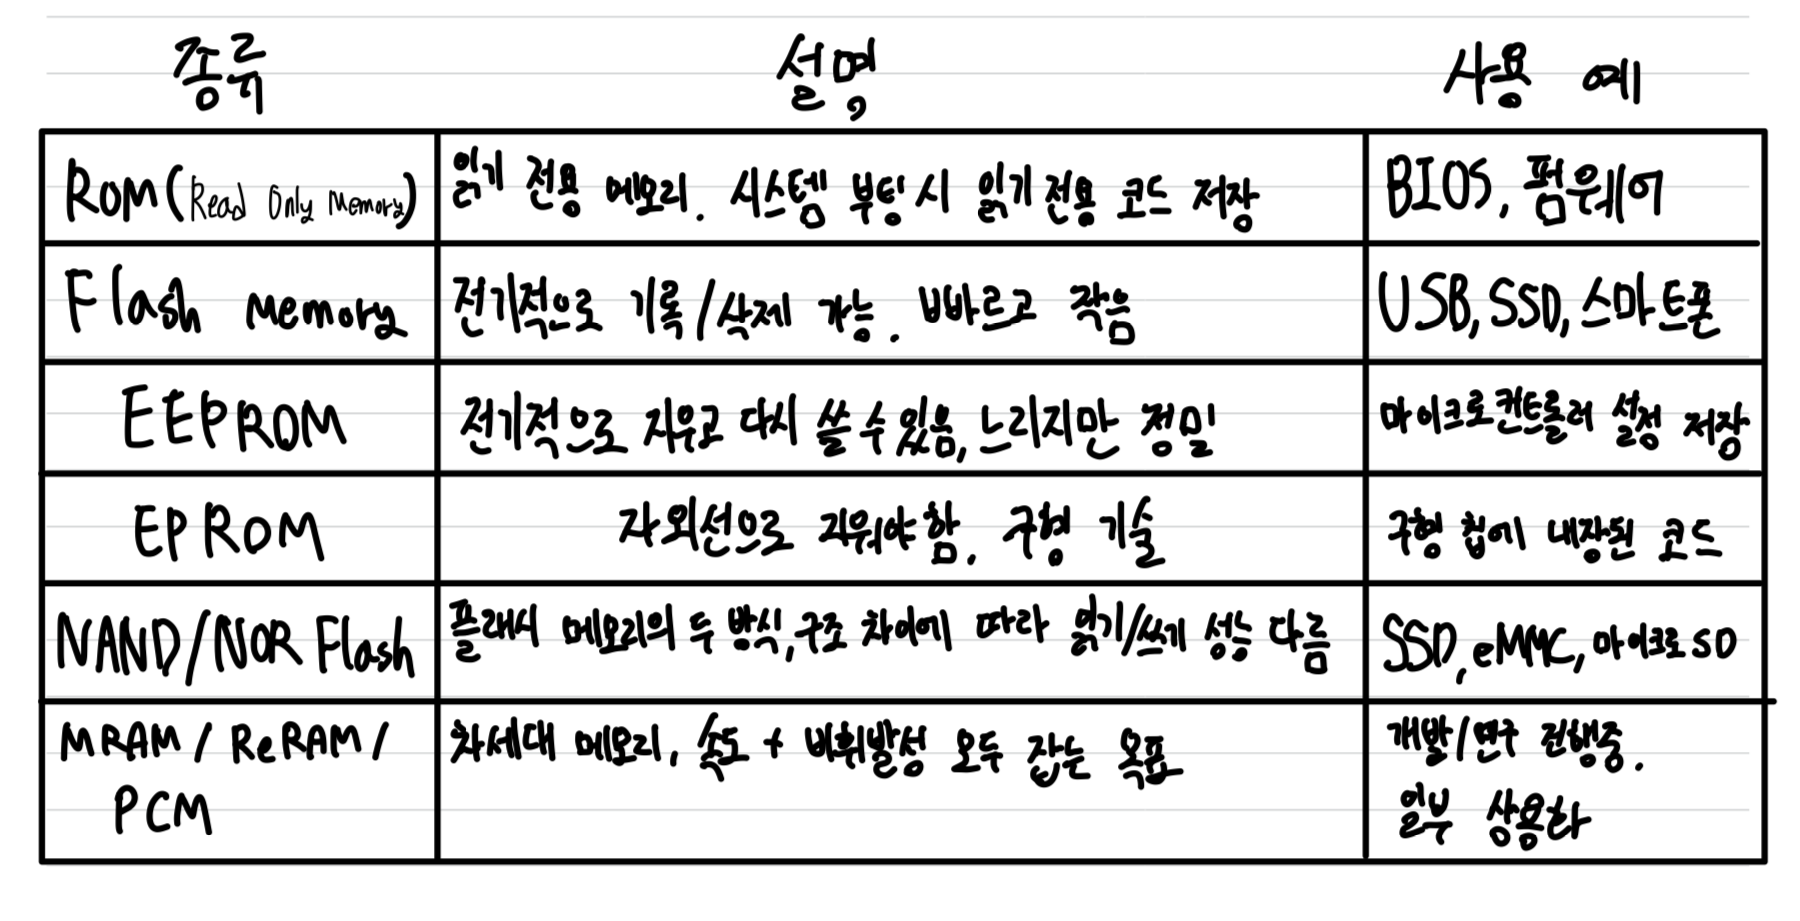 종류 설명 사용 예
ROM(Read Only Memory) 읽기 전용 메모리. 시스템 부팅 시 읽기 전용 코드 저장 BIOS, 펌웨어
Flash Memory 전기적으로 기록/삭제 가능. 빠르고 작음 USB, SSD, 스마트폰
EEPROM 전기적으로 지우고 다시 쓸 수 있음, 느리지만 정밀 마이크로컨트롤러 설정 저장
EPROM 자외선으로 지워야 함. 구형 기술 구형 칩에 내장된 코드
NAND/NOR Flash 플래시 메모리의 두 방식, 구조 차이에 따라 읽기/쓰기 성능 다름 SSD, eMMC, 마이크로 SD
MRAM/ReRAM/ 차세대 메모리, 속도 + 비휘발성 모두 잡는 목표 개발/연구 진행중.
PCM 일부 상용화